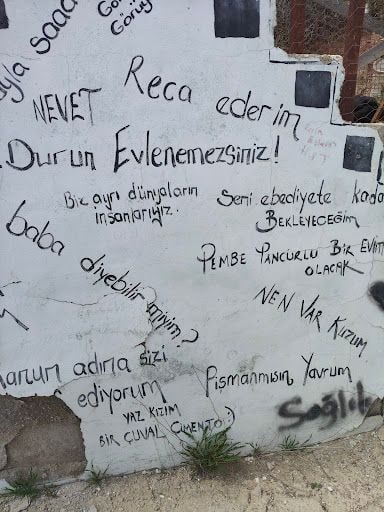 Reca ederim
NEVET
Durun Evlenemezsiniz!
Biz ayrı dünyaların
insanlarıyız.
Seni ebediyete kada
BEKLEYECEĞİM
baba diyebilir miyim?
PEMBE PANCURLU BİR EVİM
OLACAK
NEN VAR KIZUM
anun adına sizi
ediyorum
Pişmanmısın Yavrum
YAZ KIZIM
BİR ÇUVAL ÇİMENTO :)